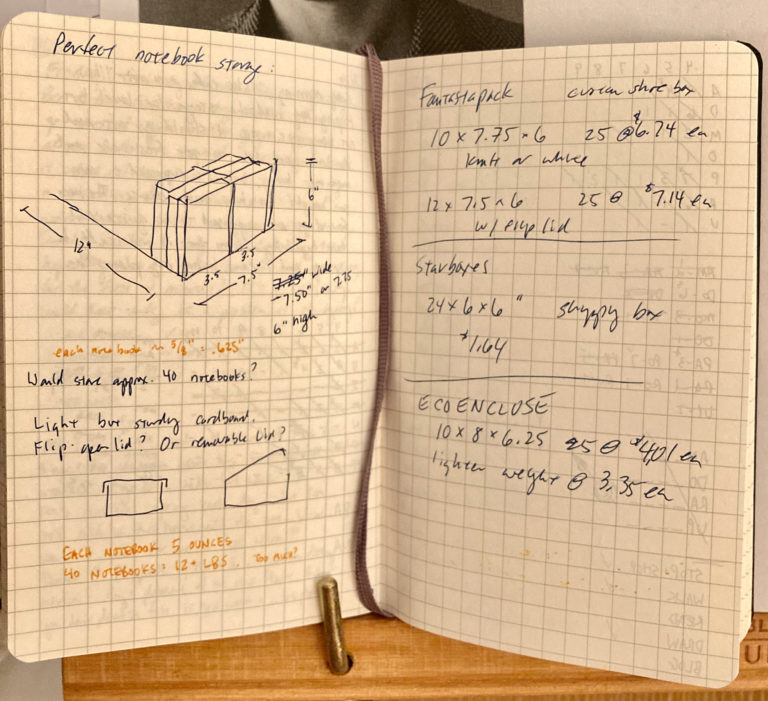 Perfect notebook storage:
6"
12"
3.5
3.5
7.5"
7.25" wide
7.50" or 7.75
6" high
each notebook ~ 5/8" = .625"
Would store approx. 40 notebooks?
Light but sturdy cardboard.
Flip-open lid? Or removable lid?
EACH NOTEBOOK 5 OUNCES
40 NOTEBOOKS = 12+ LBS. TOO MUCH?
Fantastapack custom shoe box
10 x 7.75 x 6 25 @ $6.74 ea
kraft or white
12 x 7.5 x 6 25 @ $7.14 ea
w/ flip lid
Starboxes
24 x 6 x 6" shipping box
$1.64
ECOENCLOSE
10 x 8 x 6.25 25 @ $4.01 ea
lighter weight @ 3.35 ea